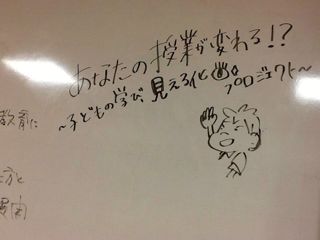 あなたの授業が変わる!?
～子どもの学び見える化プロジェクト～
教育に
方と